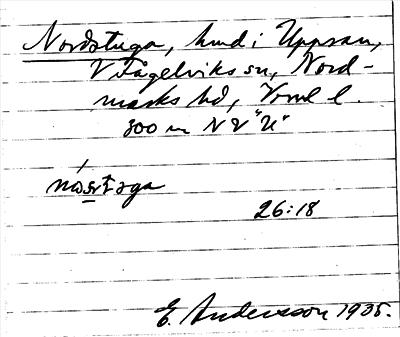 Nordstuga, hmd i Uppsau,
V Fågelviks sn, Nord-
marks hd, Vrml l.
300 m NV "U"
26:18
E. Andersson 1935.